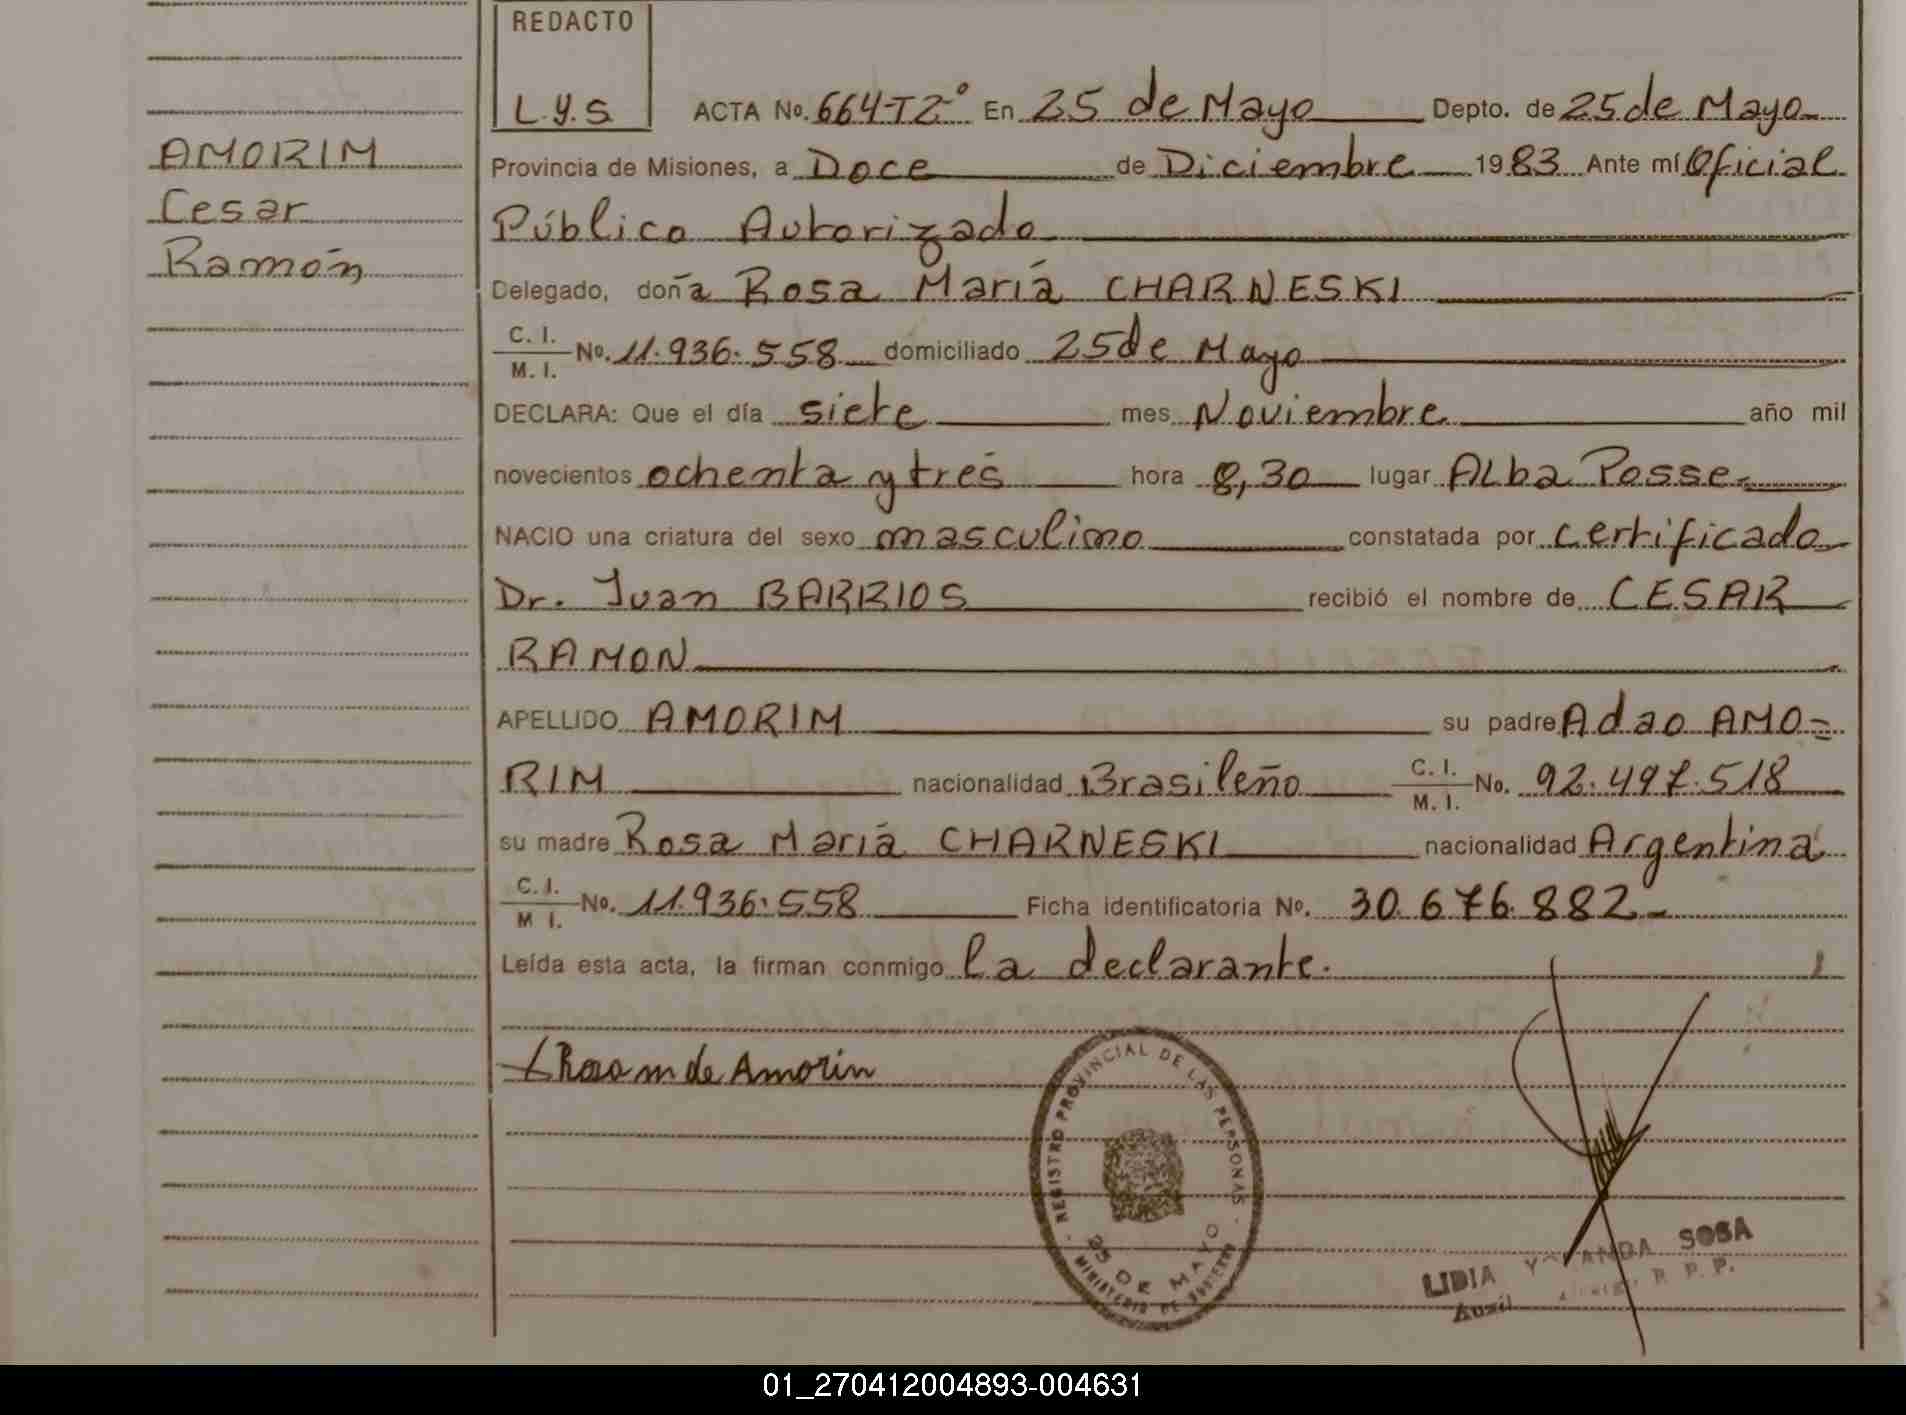 REDACTO
L.Y.S
ACTA No. 664-T2º En 25 de Mayo Depto. de 25 de Mayo
AMORIM
Cesar
Ramón
Provincia de Misiones, a Doce de Diciembre 1983 Ante mí Oficial
Público Autorizado
Delegado, doña Rosa María CHARNESKI
C. I. / M. I. No. 11.936.558 domiciliado 25 de Mayo
DECLARA: Que el día siete mes Noviembre año mil
novecientos ochenta y tres hora 8,30 lugar ALba Posse.
NACIO una criatura del sexo masculino constatada por certificado
Dr. Juan BARRIOS recibió el nombre de CESAR
RAMON
APELLIDO AMORIM su padre Adao AMO=
RIM nacionalidad Brasileño C. I. / M. I. No. 92.497.518
su madre Rosa María CHARNESKI nacionalidad Argentina
C. I. / M I. No. 11.936.558 Ficha identificatoria No. 30.676.882-
Leída esta acta, la firman conmigo la declarante.
Rosa m de Amorin
REGISTRO PROVINCIAL DE LAS PERSONAS
25 DE MAYO
MINISTERIO DE GOBIERNO
LIDIA YOLANDA SOSA
R. P. P.
01_270412004893-004631